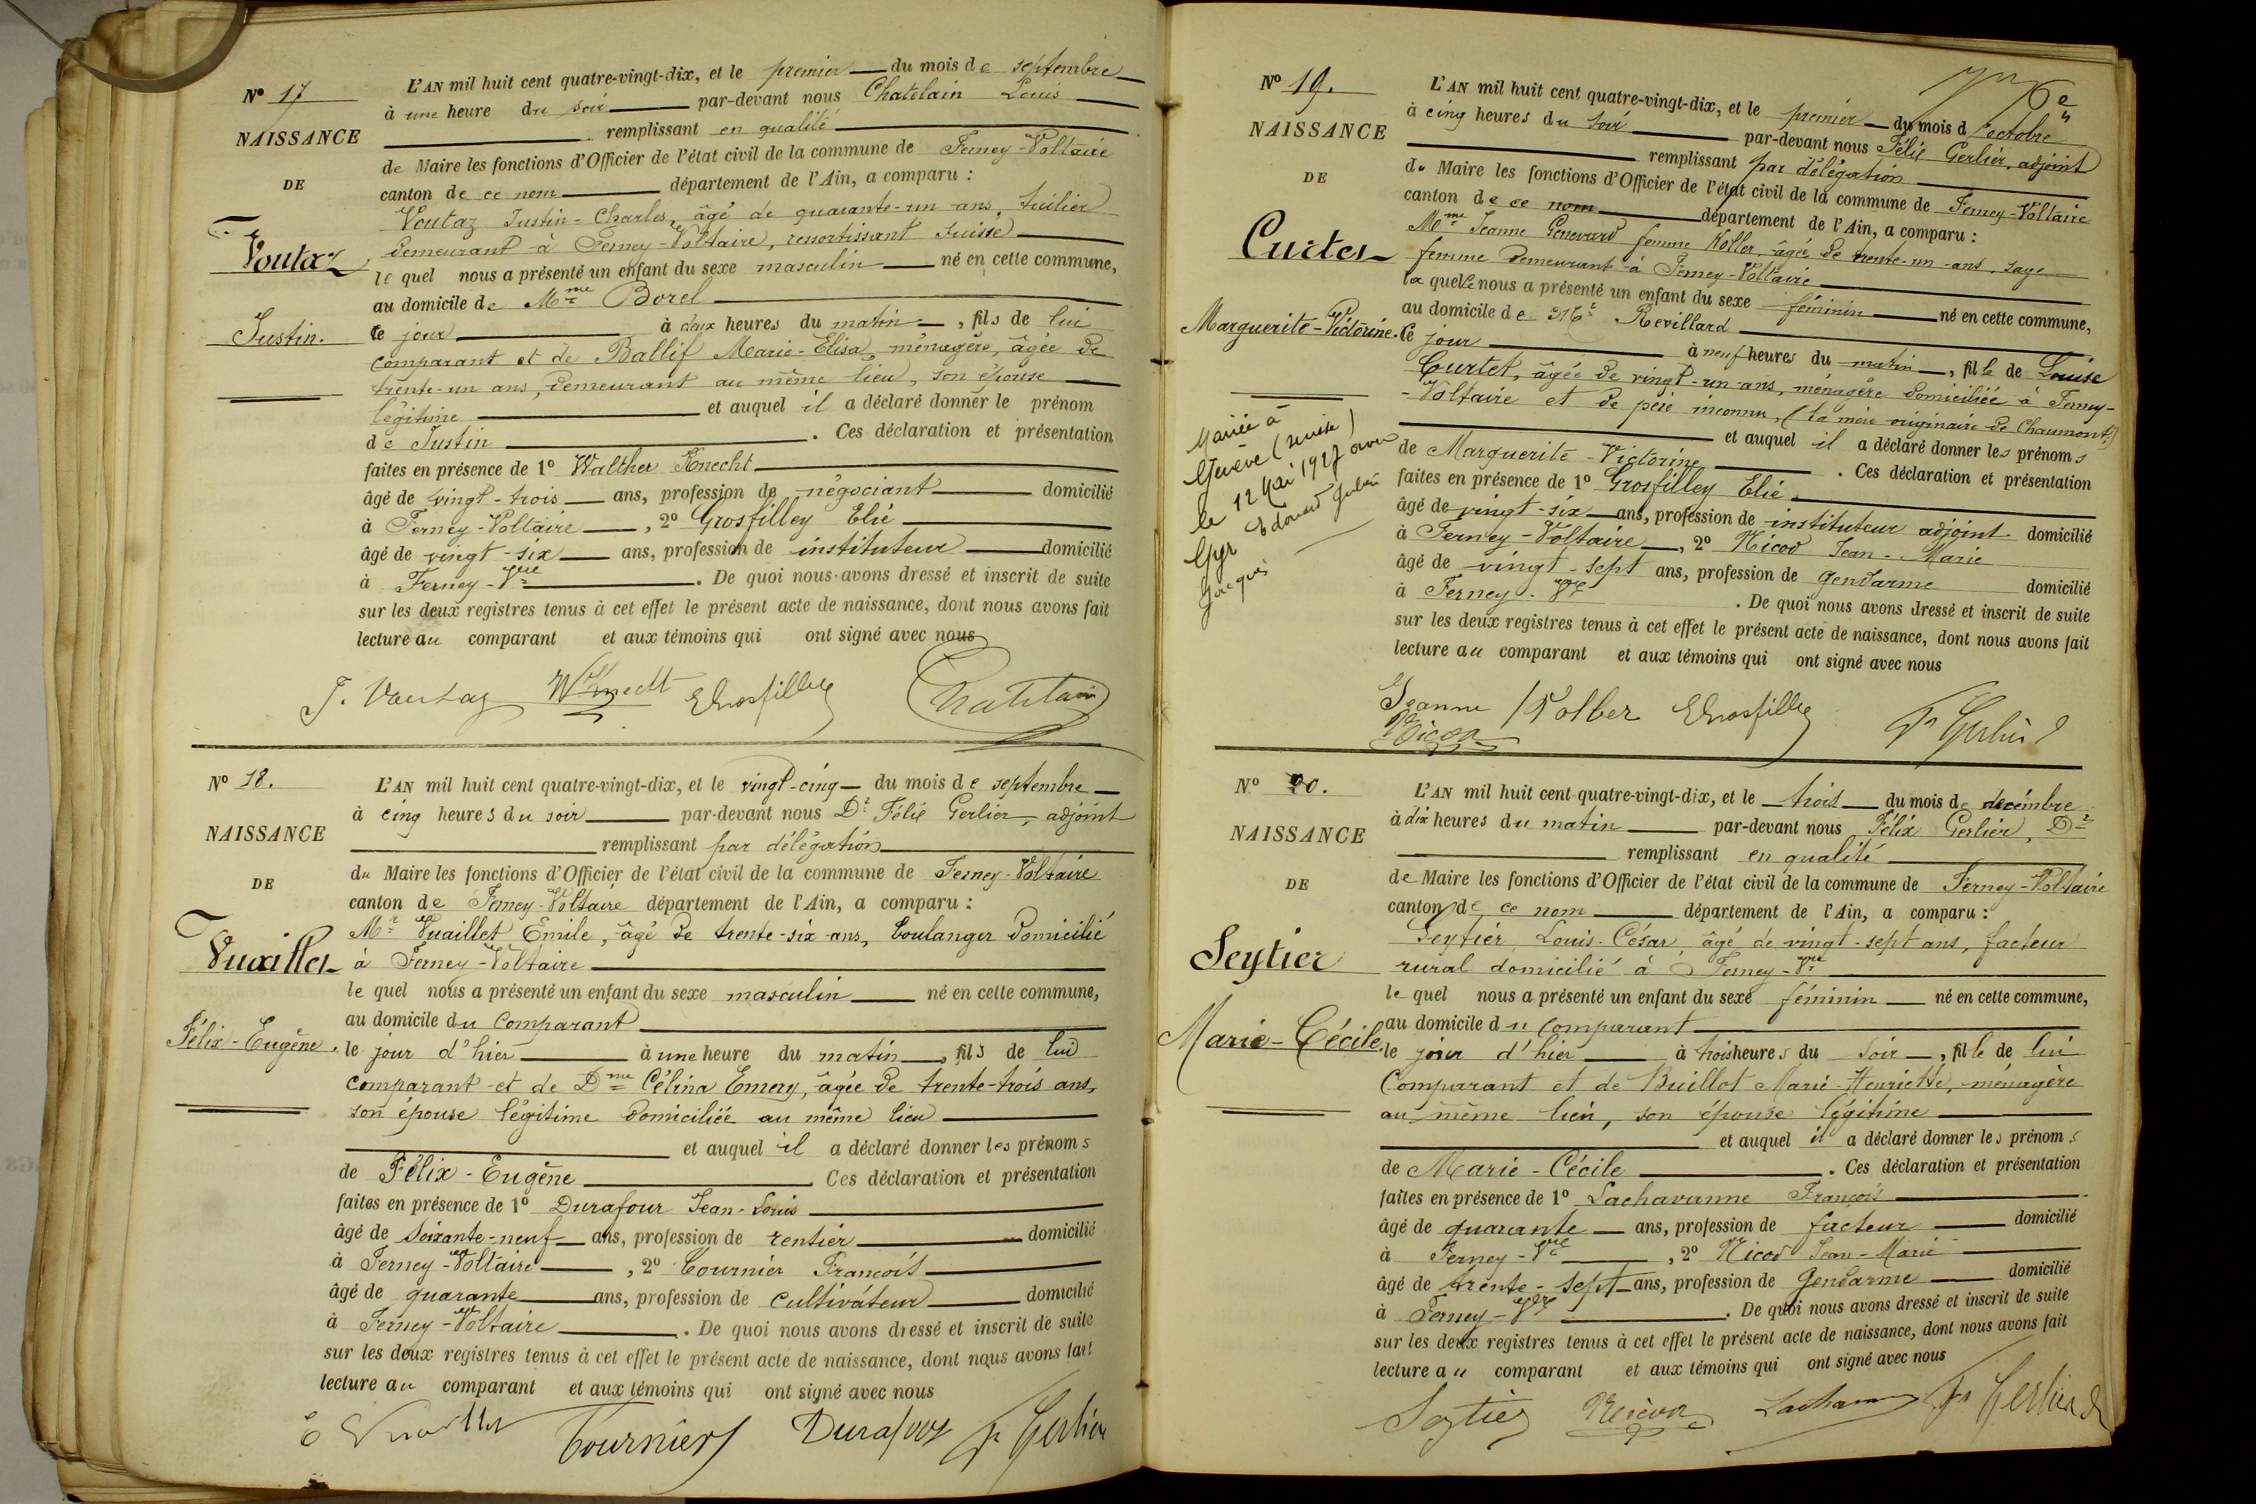 N° 17
NAISSANCE
DE
Voutaz
Justin.
L'AN mil huit cent quatre-vingt-dix, et le premier du mois de septembre
à une heure du soir par-devant nous Chatelain Louis
remplissant en qualité
de Maire les fonctions d'Officier de l'état civil de la commune de Ferney-Voltaire
canton de ce nom département de l'Ain, a comparu :
Voutaz Justin-Charles, âgé de quarante-un ans, tuilier
demeurant à Ferney-Voltaire, ressortissant suisse
le quel nous a présenté un enfant du sexe masculin né en cette commune,
au domicile de Mme Borel
ce jour à deux heures du matin, fils de lui
comparant et de Ballif Marie-Elisa, ménagère, âgée de
trente-un ans, demeurant au même lieu, son épouse
légitime et auquel il a déclaré donner le prénom
de Justin. Ces déclaration et présentation
faites en présence de 1° Walther Knecht
âgé de vingt-trois ans, profession de négociant domicilié
à Ferney-Voltaire, 2° Grosfilley Elie
âgé de vingt-six ans, profession de instituteur domicilié
à Ferney-Vre. De quoi nous avons dressé et inscrit de suite
sur les deux registres tenus à cet effet le présent acte de naissance, dont nous avons fait
lecture au comparant et aux témoins qui ont signé avec nous
J. Voutaz W Knecht E Grosfilley Chatelain
N° 18.
NAISSANCE
DE
Vuaillet
Félix-Eugène.
L'AN mil huit cent quatre-vingt-dix, et le vingt-cinq du mois de septembre
à cinq heures du soir par-devant nous Dr Félix Gerlier, adjoint
remplissant par délégation
du Maire les fonctions d'Officier de l'état civil de la commune de Ferney-Voltaire
canton de Ferney-Voltaire département de l'Ain, a comparu :
Mr Vuaillet Emile, âgé de trente-six ans, boulanger domicilié
à Ferney-Voltaire
le quel nous a présenté un enfant du sexe masculin né en cette commune,
au domicile du comparant
le jour d'hier à une heure du matin, fils de lui
comparant et de Dme Célina Emery, âgée de trente-trois ans,
son épouse légitime domiciliée au même lieu
et auquel il a déclaré donner les prénoms
de Félix-Eugène Ces déclaration et présentation
faites en présence de 1° Durafour Jean-Louis
âgé de soixante-neuf ans, profession de rentier domicilié
à Ferney-Voltaire, 2° Tournier François
âgé de quarante ans, profession de cultivateur domicilié
à Ferney-Voltaire. De quoi nous avons dressé et inscrit de suite
sur les deux registres tenus à cet effet le présent acte de naissance, dont nous avons fait
lecture au comparant et aux témoins qui ont signé avec nous
E Vuaillet Tournier Durafour Fx Gerlier
N° 19.
NAISSANCE
DE
Curtet
Marguerite-Victorine.
Mariée à
Genève (suisse)
le 12 Mai 1927 avec
Gyr Edouard Julien
Jacques
L'AN mil huit cent quatre-vingt-dix, et le premier du mois d'octobre
à cinq heures du soir par-devant nous Félix Gerlier, adjoint
remplissant par délégation
du Maire les fonctions d'Officier de l'état civil de la commune de Ferney-Voltaire
canton de ce nom département de l'Ain, a comparu :
Mme Jeanne Genevard femme Koller, âgée de trente-un-ans, sage
femme demeurant à Ferney-Voltaire
la quelle nous a présenté un enfant du sexe féminin né en cette commune,
au domicile de Mr Revillard
ce jour à neuf heures du matin, fille de Louise
Curtet, âgée de vingt-un-ans, ménagère domiciliée à Ferney-
-Voltaire et de père inconnu, (la mère originaire de Chaumont,)
et auquel il a déclaré donner les prénoms
de Marguerite-Victorine. Ces déclaration et présentation
faites en présence de 1° Grosfilley Elie
âgé de vingt-six ans, profession de instituteur adjoint domicilié
à Ferney-Voltaire, 2° Nicod Jean-Marie
âgé de vingt-sept ans, profession de gendarme domicilié
à Ferney-Vre. De quoi nous avons dressé et inscrit de suite
sur les deux registres tenus à cet effet le présent acte de naissance, dont nous avons fait
lecture au comparant et aux témoins qui ont signé avec nous
Jeanne Kolber E Grosfilley Fx Gerlier
Nicod
N° 20.
NAISSANCE
DE
Seytier
Marie-Cécile.
L'AN mil huit cent quatre-vingt-dix, et le trois du mois de décembre
à dix heures du matin par-devant nous Félix Gerlier, Dr
remplissant en qualité
de Maire les fonctions d'Officier de l'état civil de la commune de Ferney-Voltaire
canton de ce nom département de l'Ain, a comparu :
Seytier Louis-César âgé de vingt-sept ans, facteur
rural domicilié à Ferney-Vre
le quel nous a présenté un enfant du sexe féminin né en cette commune,
au domicile du comparant
le jour d'hier à trois heures du soir, fille de lui
comparant et de Buillot Marie-Henriette, ménagère
au même lieu, son épouse légitime
et auquel il a déclaré donner les prénoms
de Marie-Cécile. Ces déclaration et présentation
faites en présence de 1° Lachavanne François
âgé de quarante ans, profession de facteur domicilié
à Ferney-Vre, 2° Nicod Jean-Marie
âgé de trente-sept ans, profession de Gendarme domicilié
à Ferney-Vre. De quoi nous avons dressé et inscrit de suite
sur les deux registres tenus à cet effet le présent acte de naissance, dont nous avons fait
lecture au comparant et aux témoins qui ont signé avec nous
Seytier Nicod Lachavanne Fx Gerlier